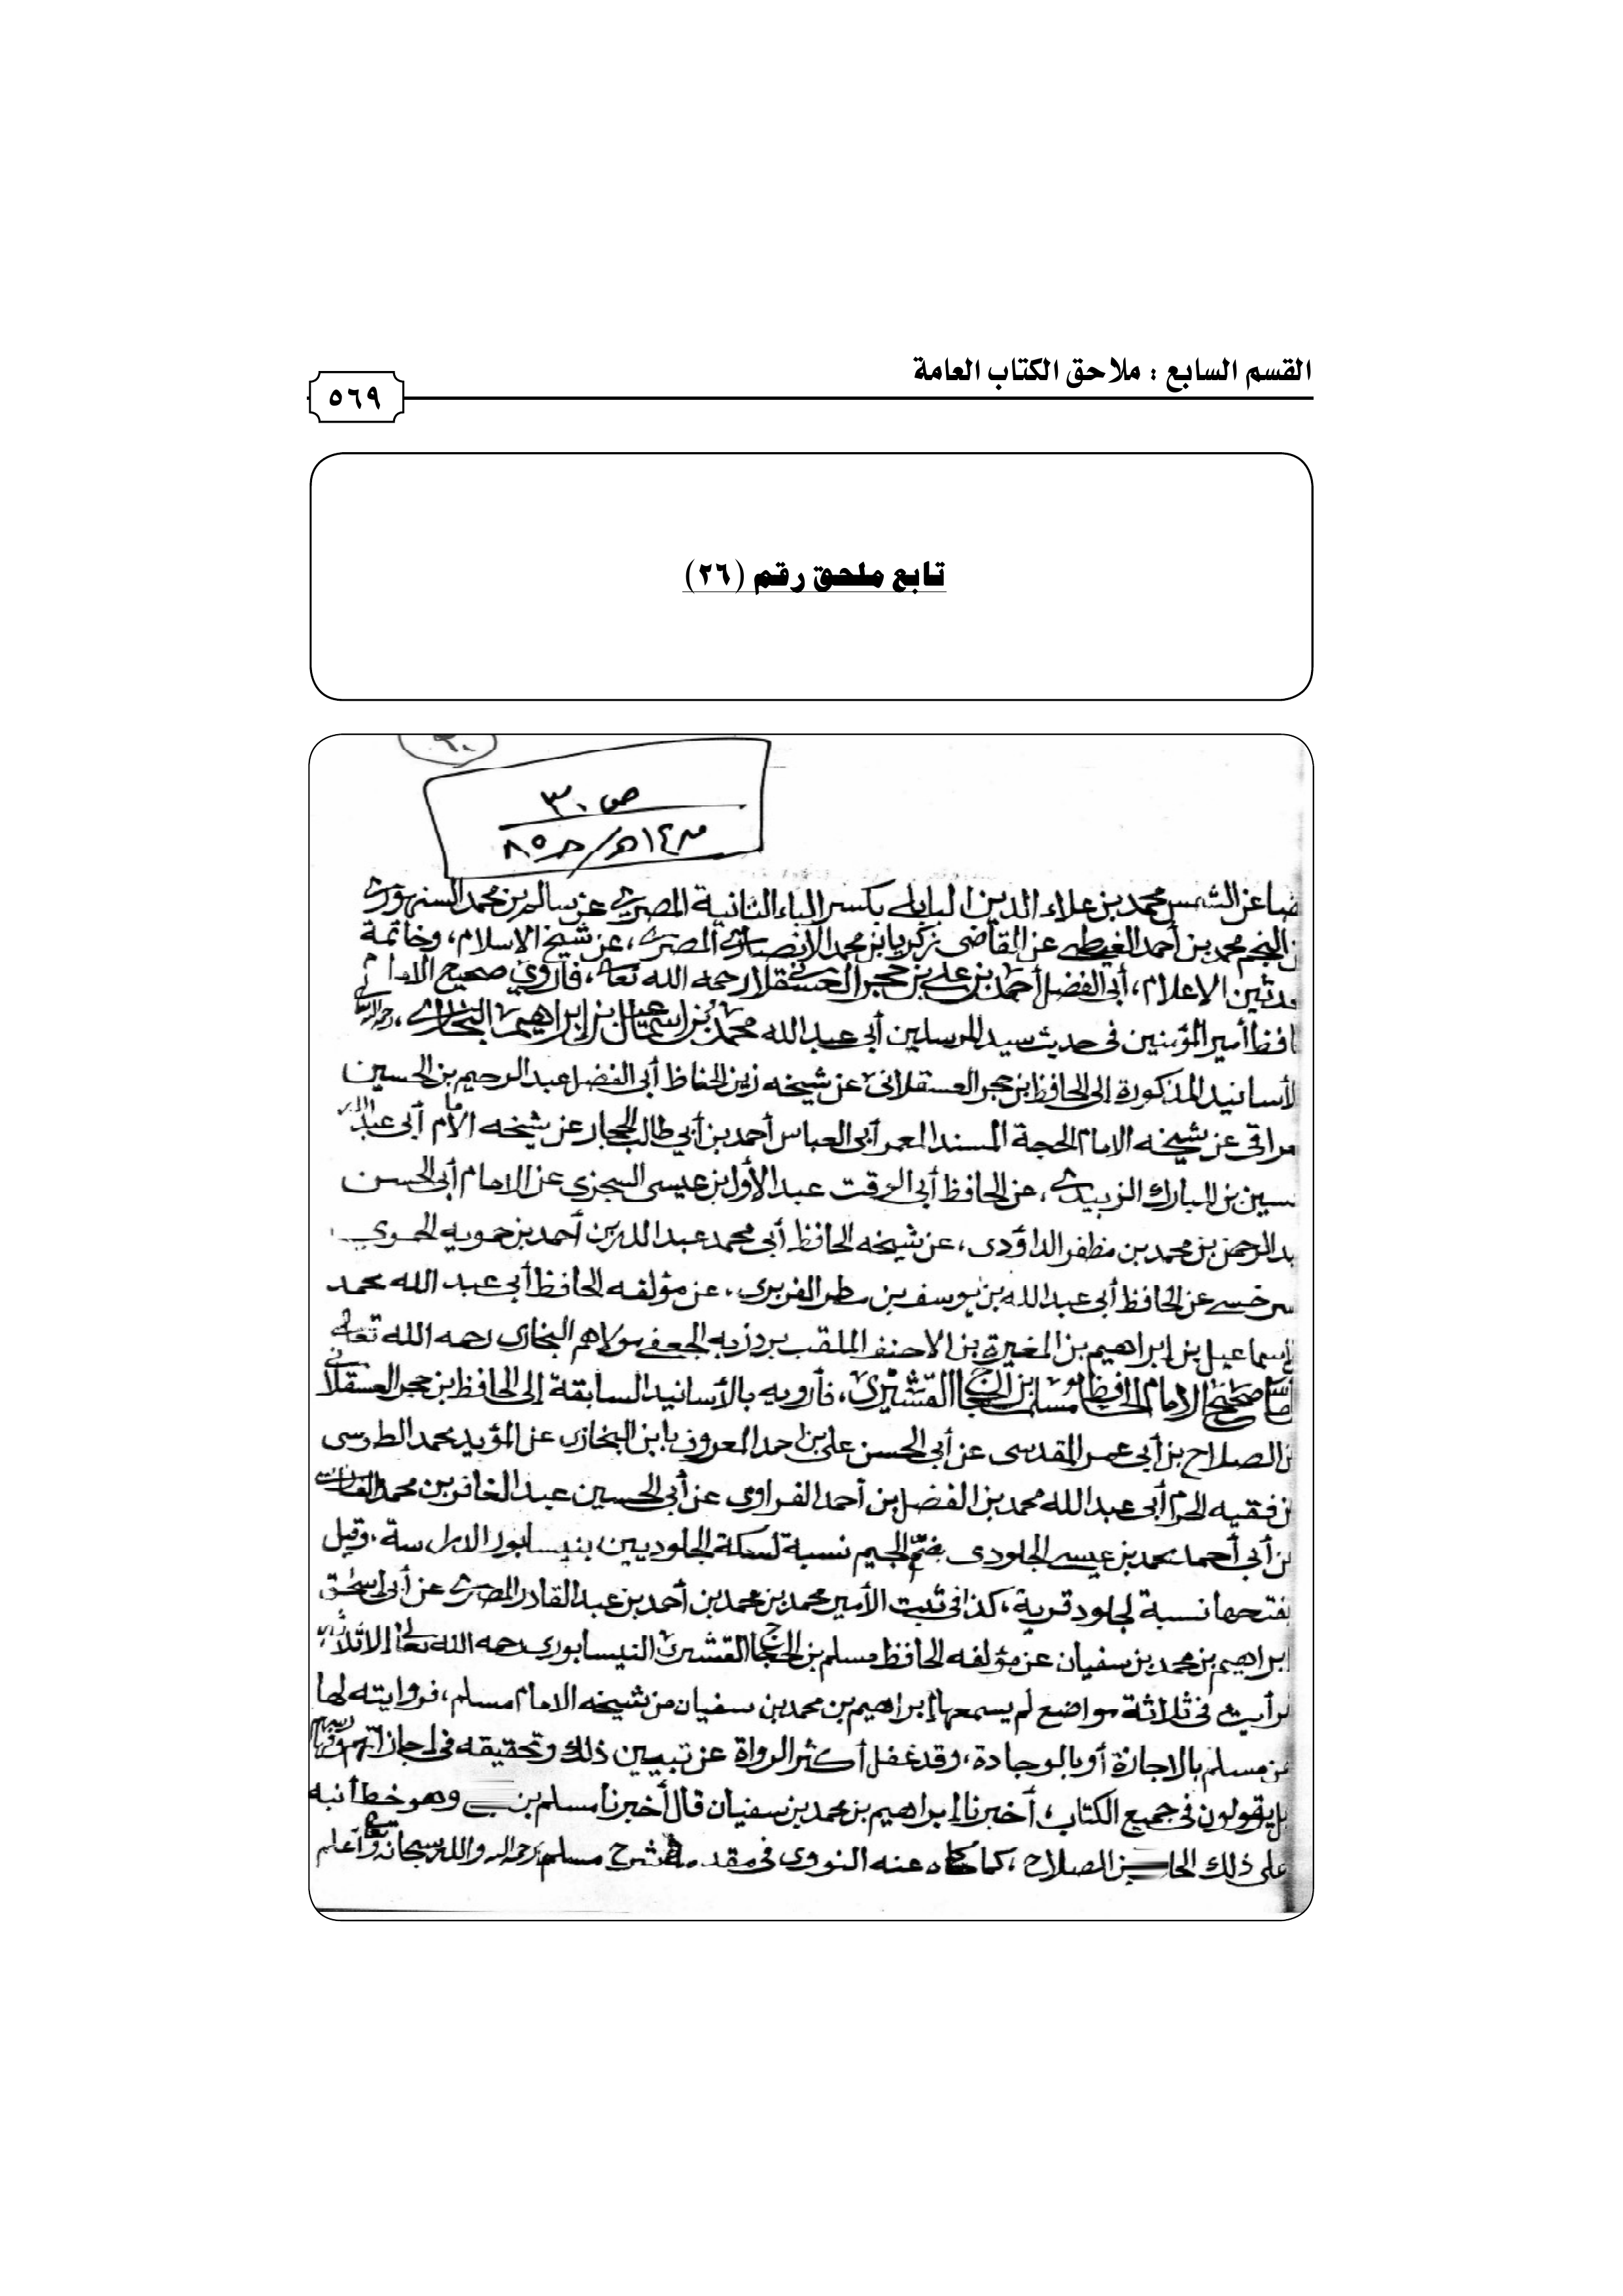 القسم السابع : ملاحق الكتاب العامة
٥٦٩
تابع ملحق رقم (٢٦)
ص ٣٠
عن الشمس محمد بن علاء الدين البابلي بكسر الباء الثانية المصري عن سالم بن محمد السنهوري
النجم محمد بن أحمد الغيطي عن القاضي زكريا بن محمد الانصاري المصري، عن شيخ الاسلام، وخاتمة
الاعلام، أبي الفضل أحمد بن علي بن حجر العسقلاني رحمه الله تعالى، فأروي صحيح الامام
أمير المؤمنين في حديث سيد المرسلين أبي عبد الله محمد بن اسماعيل بن ابراهيم البخاري، رحمه الله تعالى
لأسانيد المذكورة إلى الحافظ ابن حجر العسقلاني عن شيخه زين الحفاظ أبي الفضل عبد الرحيم بن الحسين
عراقي عن شيخه الامام الحجة المسند المعمر أبي العباس أحمد بن أبي طالب الحجار عن شيخه الامام أبي عبد الله
سين بن المبارك الزبيدي، عن الحافظ أبي الوقت عبد الأول بن عيسى السجزي عن الامام أبي الحسن
بد الرحمن بن محمد بن مظفر الداوُدى، عن شيخه الحافظ أبي محمد عبد الله بن أحمد بن حمويه الحموي
سرخسي عن الحافظ أبي عبد الله بن يوسف بن مطر الفربري، عن مؤلفه الحافظ أبي عبد الله محمد
إسماعيل بن ابراهيم بن المغيرة بن الاحنف الملقب بردزبه الجعفي مولاهم البخاري رحمه الله تعالى
صحيح الامام الحافظ مسلم بن الحجاج القشيري، فأرويه بالأسانيد السابقة إلى الحافظ ابن حجر العسقلاني
ن الصلاح بن أبي عمر المقدسى عن أبي الحسن علي بن احمد المعروف بابن البخاري عن المؤيد محمد الطوسى
ن فقيه الحرم أبي عبد الله محمد بن الفضل بن أحمد الفراوي عن أبي الحسين عبد الغافر بن محمد الفارسي
ن أبي أحمد محمد بن عيسى الجلودى بضم الجيم نسبة لسكة الجلوديين بنيسابور الدارسة، وقيل
بفتحها نسبة لجلود قرية، كذا في ثبت الأمير محمد بن محمد بن أحمد بن عبد القادر المصري عن أبي اسحق
ابراهيم بن محمد بن سفيان عن مؤلفه الحافظ مسلم بن الحجاج القشيري النيسابوري رحمه الله تعالى إلا ثلاث
في ثلاثة مواضع لم يسمعها إبراهيم بن محمد بن سفيان من شيخه الامام مسلم، فروايته لها
عن مسلم بالاجازة أو بالوجادة، وقد غفل أكثر الرواة عن تبيين ذلك وتحقيقه في إجازاتهم
بل يقولون في جميع الكتاب، أخبرنا إبراهيم بن محمد بن سفيان قال أخبرنا مسلم بن وهو خطأ نبه
على ذلك بن الصلاح، كما حكاه عنه النووي في مقدمة شرح مسلم رحمه الله والله سبحانه وتعالى أعلم